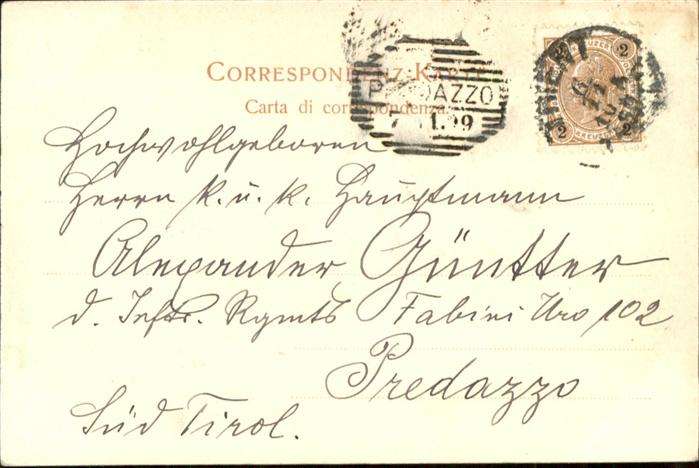 CORRESPONDENZ-KARTE
Carta di corrispondenza.
PREDAZZO
1.99
TRIENT
2
2 KREUZER 2
Hochwohlgeboren
Herrn k. u. k. Hauptmann
Alexander Güntter
d. Inftr. Rgmts Fabini Nro 102
Predazzo
Süd Tirol.